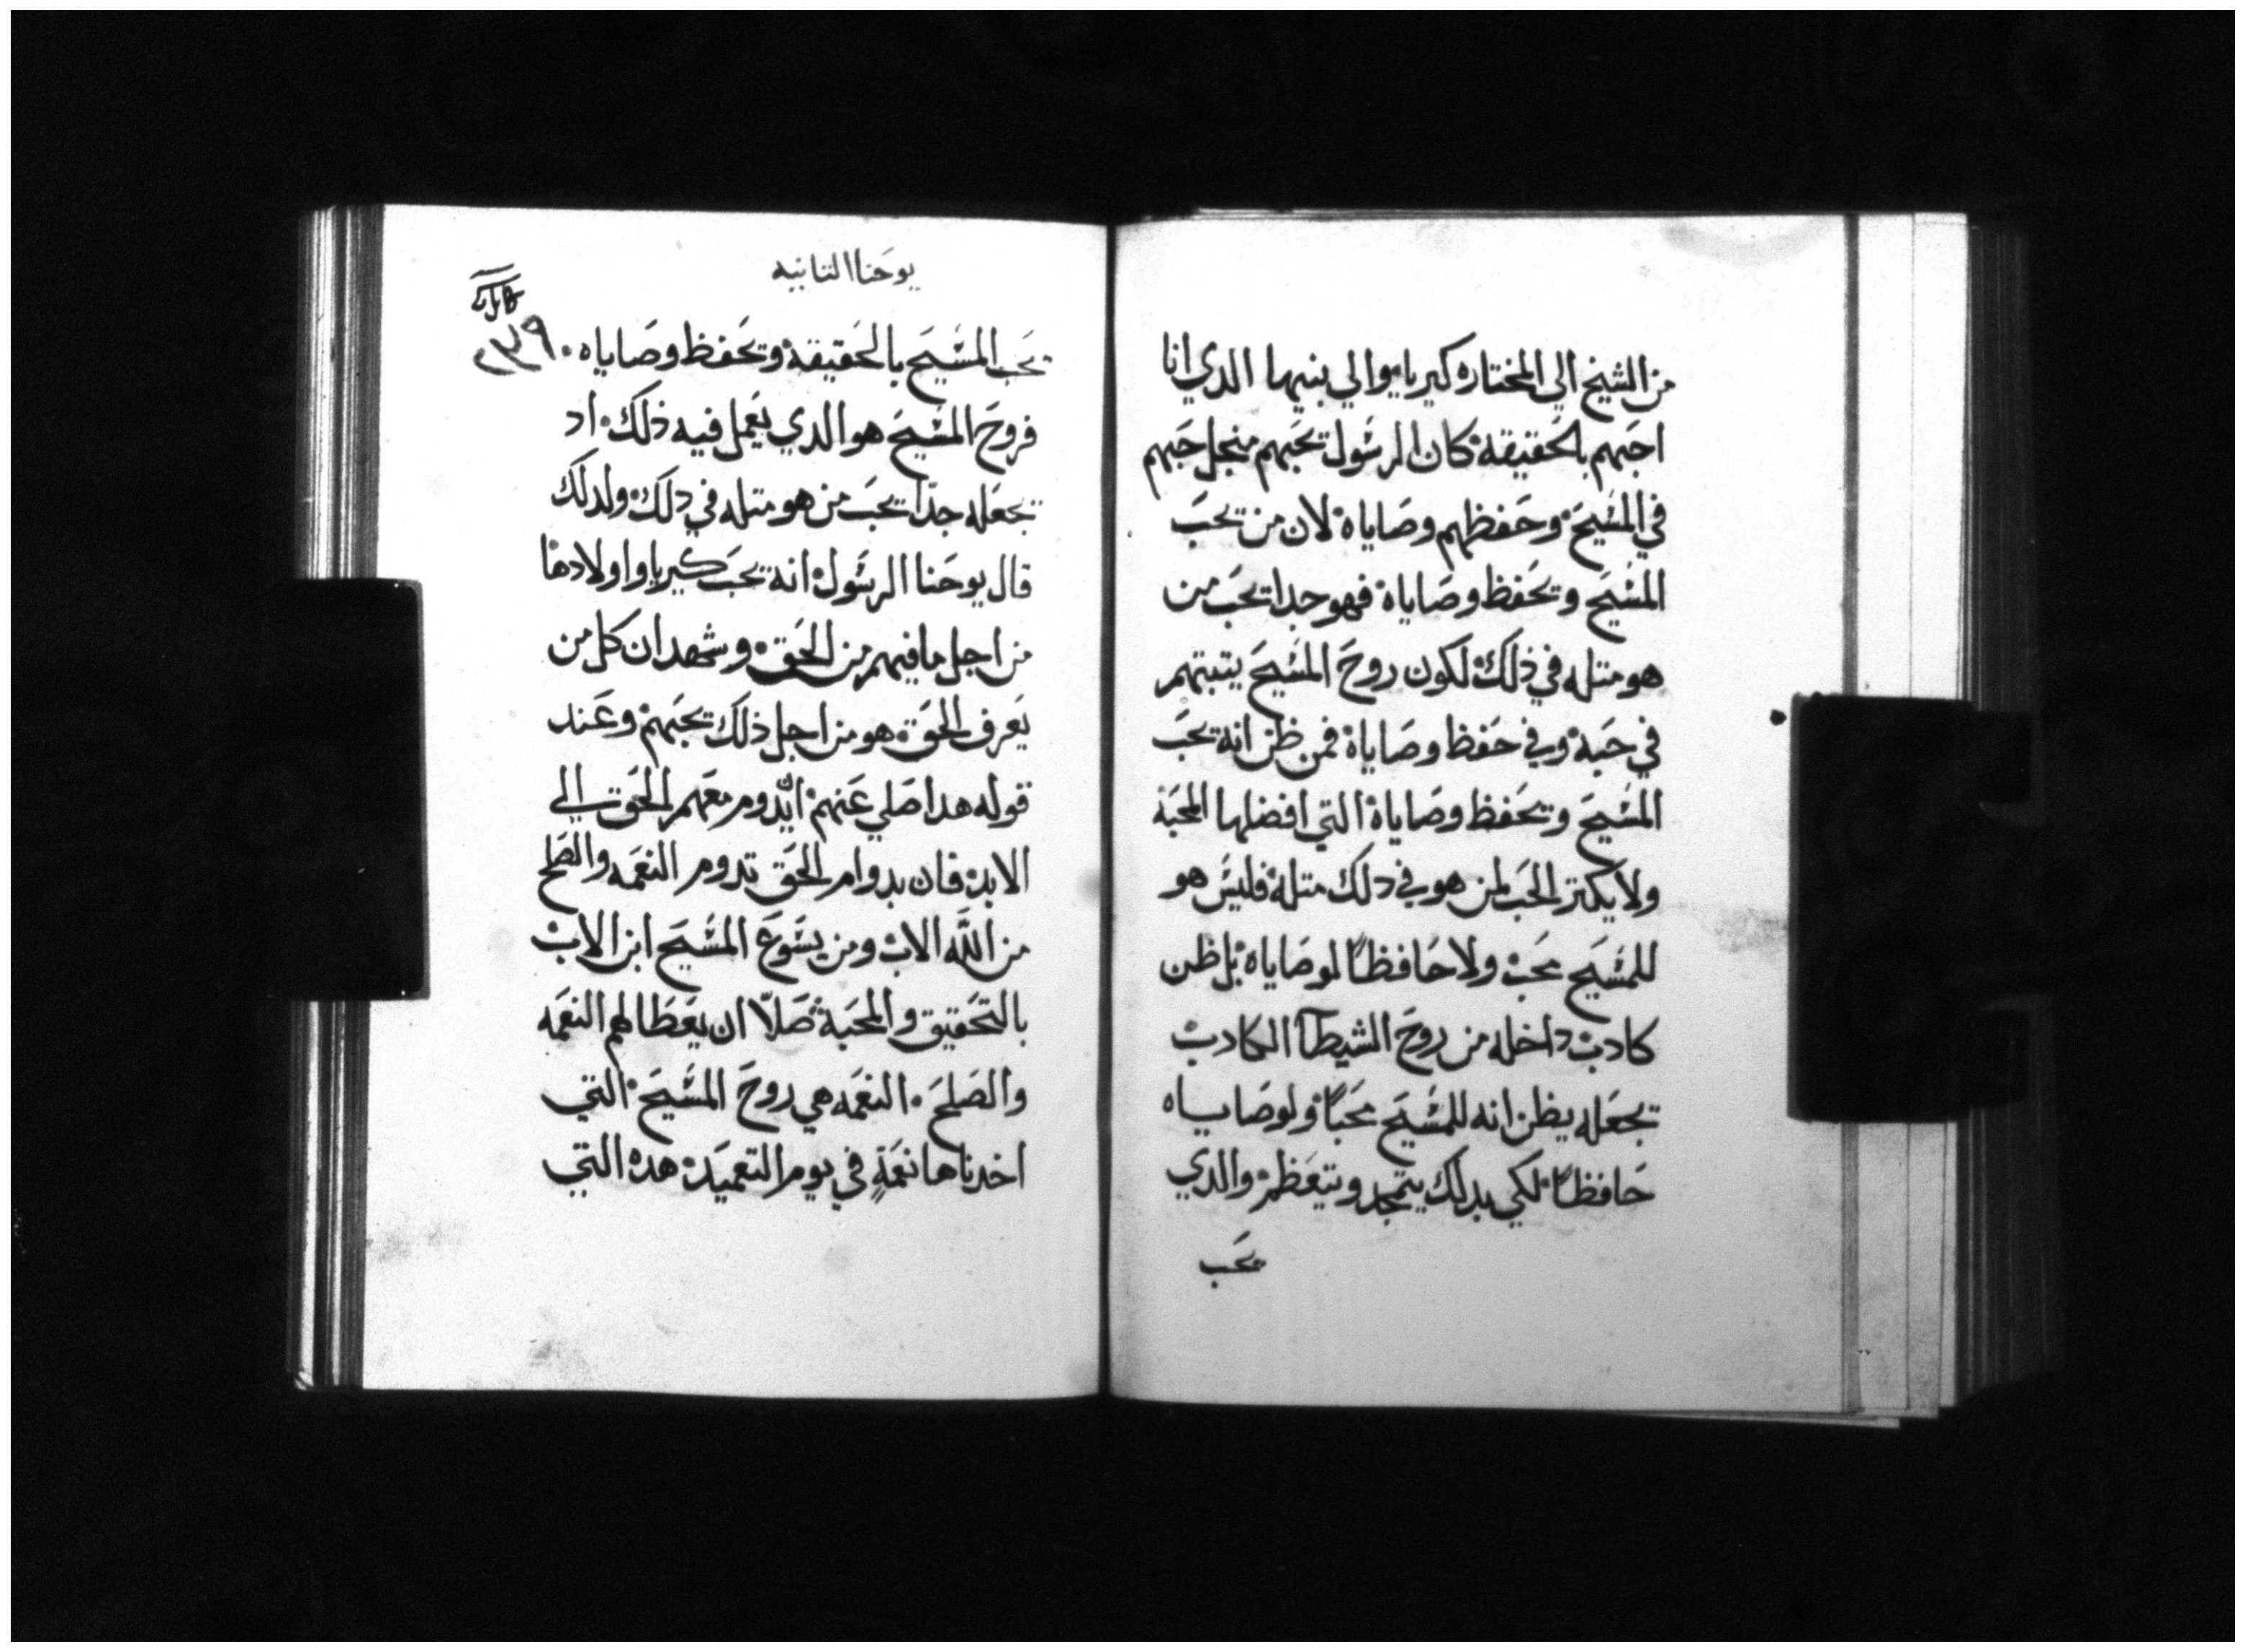 من الشيخ الي المختاره كيريا والي بنيها الدي انا
احبهم بالحقيقة كان الرسول يحبهم منجل حبهم
في المسيح وحفظهم وصاياه لان من يحب
المسيح ويحفظ وصاياه فهو جدا يحب من
هو متله في ذلك لكون روح المسيح يتبتهم
في حبه وفي حفظ وصاياه فمن ظن انه يحب
المسيح ويحفظ وصاياه التي افضلها المحبة
ولا يكتر الحب لمن هو في دلك متله فليس هو
للمسيح محب ولا حافظاً لوصاياه بل ظن
كادب داخله من روح الشيطان الكادب
يجعله يظن انه للمسيح محباً ولوصاياه
حافظاً لكي بدلك يتمجد ويتعظم والدي
يحب
يوحنا التانيه
يحب المسيح بالحقيقة ويحفظ وصاياه
فروح المسيح هو الدي يعمل فيه ذلك اد
يجعله جدّا يحب من هو متله في دلك ولدلك
قال يوحنا الرسول انه يحب كيريا واولادها
من اجل ما فيهم من الحق وشهد ان كل من
يعرف الحق هو من اجل ذلك يحبهم وعند
قوله هدا صلي عنهم ان يدوم معهم الحق الي
الابد فان بدوام الحق تدوم النعمه والصلح
من اللّه الاب ومن يسوع المسيح ابن الاب
بالتحقيق والمحبة صلّا ان يعطا لهم النعمه
والصلح النعمه هي روح المسيح التي
اخدناها نعمةٍ في يوم التعميد هده التي